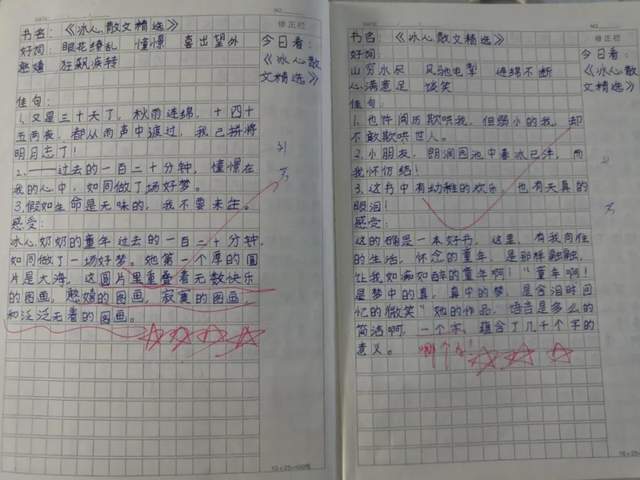 书名：《冰心散文精选》
好词：眼花缭乱 憧憬 喜出望外
憨嬉 狂飙疾转
佳句：
1.又是三十天了，秋雨连绵，十四十
五两夜，都从雨声中渡过，我已拼将
明月忘了！
2.——过去的一百二十分钟，憧憬在
我的心中，如同做了场好梦。
3.假如生命是无味的，我不要来生。
感受：
冰心奶奶的童年过去的一百二十分钟，
如同做了一场好梦。她第一个厚的圆
片是大海，这圆片里重叠着无数快乐
的图画，憨嬉的图画，寂寞的图画，
和泛泛无着的图画。
修正栏
今日看：
《冰心散
文精选》
书名：《冰心散文精选》
好词：
山穷水尽 风驰电掣 连绵不断
心满意足
佳句：
1.也许阅历欺哄我，但弱小的我，却
不敢欺哄世人。
2.小朋友，朗润园池中春冰已泮，而
我怀仍结！
3.这书中有幼稚的欢乐，也有天真的
眼泪！
感受：
这的确是一本好书，这里，有我向往
的生活，怀念的童年，是那样融融，
让我如痴如醉的童年啊！“童年啊！
是梦中的真，真中的梦，是含泪时回
忆的微笑”她的作品，语言是多么的
简洁啊，一个字，蕴含了几千个字的
意义。
哪个字！
修正栏
今日看：
《冰心散
文精选》